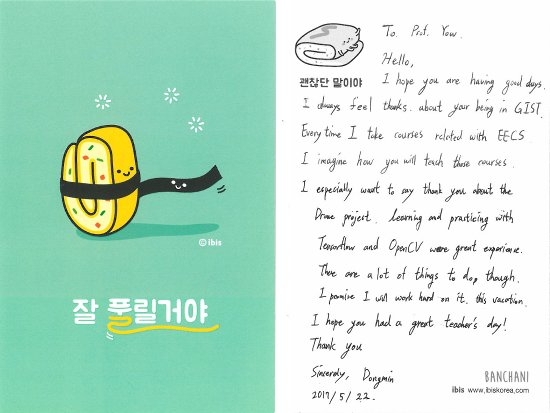 ©ibis
잘 풀릴거야
괜찮단 말이야
To. Prof. Yow.
Hello,
I hope you are having good days.
I always feel thanks about your being in GIST.
Every time I take courses related with EECS
I imagine how you will teach those courses.
I especially want to say thank you about the
Drone project. learning and practicing with
Tensorflow and OpenCV were great experience.
There are a lot of things to do, though.
I promise I will work hard on it, this vacation.
I hope you had a great teacher's day!
Thank you
Sincerely, Dongmin
2017/5/22.
BANCHANI
ibis www.ibiskorea.com